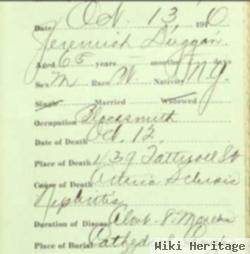 Date Oct. 13, 1910
Jeremiah Duggan
Aged 65 years months days
Sex M Race W Nativity N.Y.
Single Married Widowed
Occupation Blacksmith
Date of Death Oct. 12
Place of Death 239 Tattnall St
Cause of Death Arterio Sclerosis
Nephritis
Duration of Disease About
Place of Burial Cathed
Wiki Heritage